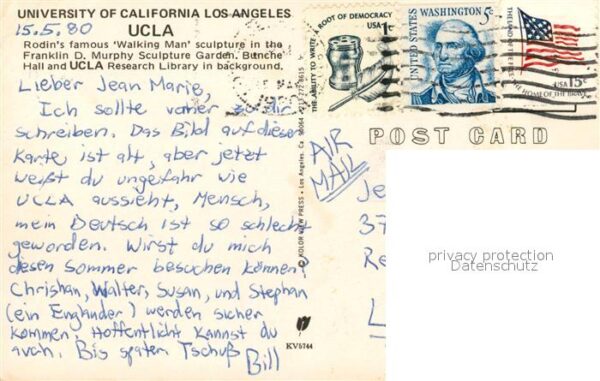 UNIVERSITY OF CALIFORNIA LOS ANGELES
15.5.80 UCLA
Rodin's famous 'Walking Man' sculpture in the
Franklin D. Murphy Sculpture Garden. Bunche
Hall and UCLA Research Library in background.
Lieber Jean Marie,
Ich sollte vorher zu dir
schreiben. Das Bild auf dieser
Karte ist alt, aber jetzt
weißt du ungefahr wie
UCLA aussieht, Mensch,
mein Deutsch ist so schlecht
geworden. Wirst du mich
diesen Sommer besuchen können?
Christian, Walter, Susan, und Stephan
(ein Engländer) werden sicher
kommen. Hoffentlicht kannst du
auch. Bis spater. Tschuß
Bill
© KOLOR VIEW PRESS • Los Angeles, Ca 90064
KV5744
ROOT OF DEMOCRACY
THE ABILITY TO WRITE
USA 1c
UNITED STATES
WASHINGTON 5c
USA 15c
THE HOME OF THE BRAVE
POST CARD
AIR
MAIL
Je
37
Re
L
privacy protection
Datenschutz